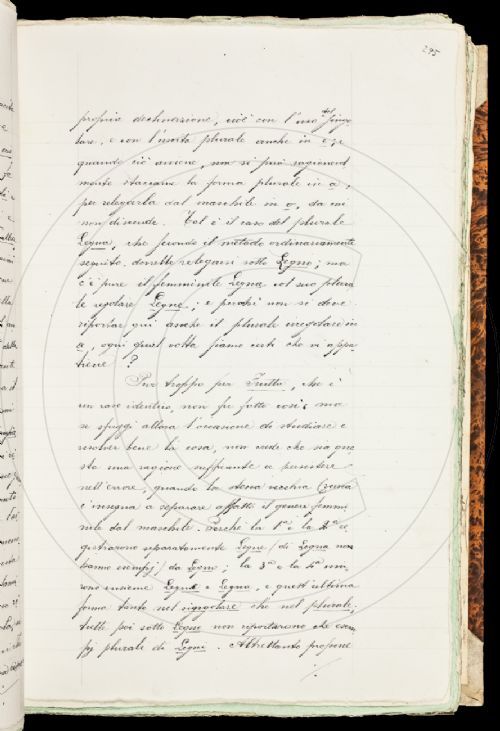 295
propria declinazione, cioè con l'uso del singo
lare, e con l'uscita plurale anche in e; e
quando ciò avviene, non si può ragionevol
mente staccare la forma plurale in a,
per relegarla dal maschile in o, da cui
non discende. Tal è il caso del plurale
Legna, che secondo il metodo ordinariamente
seguito, dovrebbe relegarsi sotto Legno; ma
c'è pure il femminile Legna col suo plura
le regolare Legne; e perchè non si deve
riportar qui anche il plurale irregolare in
a, ogni qual volta siamo certi che vi appar
tiene?
Pur troppo per Frutta, che è
un caso identico, non fu fatto così; ma
se sfuggì allora l'occasione di studiare e
resolver bene la cosa, non vede che sia que
sta una ragione sufficiente a persistere
nell'errore, quando la stessa vecchia Crusca
c'insegna a separare affatto il genere femmi
nile dal maschile. Perchè la 1ª e la 2ª re
gistrarono separatamente Legne (di Legna non
hanno esempj) da Legno; la 3ª e la 4ª uni
rono insieme Legne e Legna, e quest'ultima
forma tanto nel singolare che nel plurale;
tutte poi sotto Legno non riportarono che esem
pj plurali di Legni. Altrettanto propone
./.